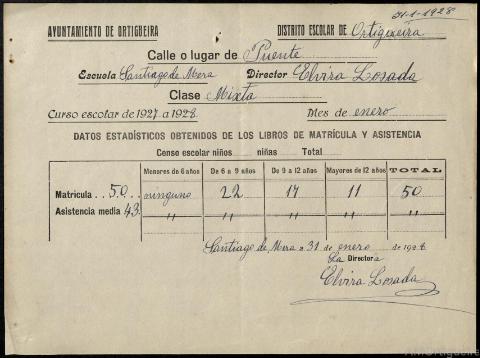 31-1-1928
AYUNTAMIENTO DE ORTIGUEIRA DISTRITO ESCOLAR DE Ortigueira
Calle o lugar de Puente
Escuela Santiago de Mera Director Elvira Losada
Clase Mixta
Curso escolar de 1927 a 1928. Mes de enero
DATOS ESTADÍSTICOS OBTENIDOS DE LOS LIBROS DE MATRÍCULA Y ASISTENCIA
Censo escolar niños niñas Total
Menores de 6 años De 6 a 9 años De 9 a 12 años Mayores de 12 años TOTAL
Matrícula . . 50 . . ninguno 22 17 11 50
Asistencia media 43 " " " " "
Santiago de Mera a 31 de enero de 1928
La Directora
Elvira Losada